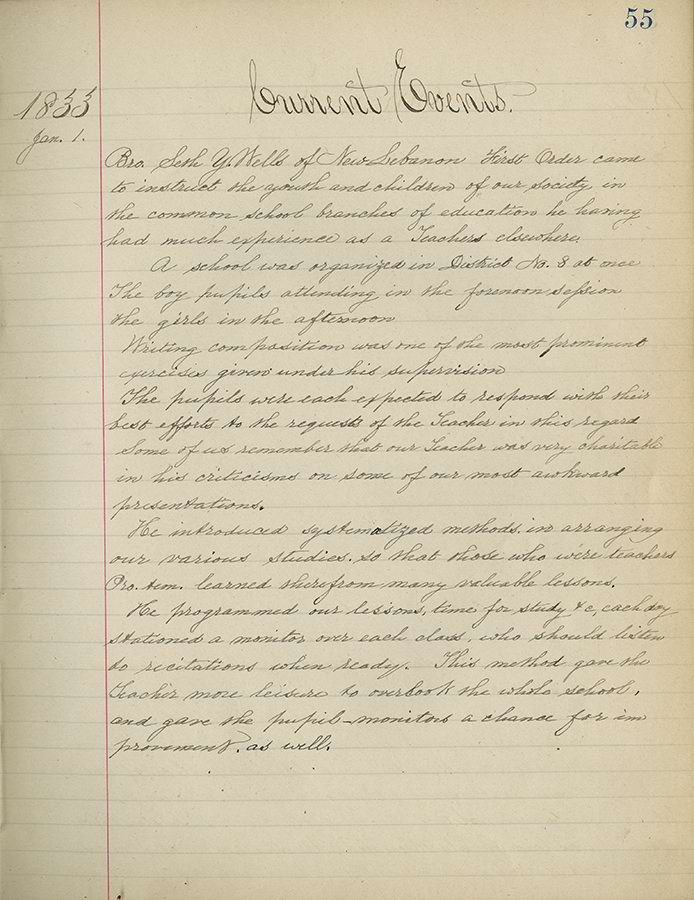 55
Current Events.
1833
Jan. 1.
Bro. Seth Y. Wells of New Lebanon First Order came
to instruct the youth and children of our society in
the common school branches of education he having
had much experience as a Teachers elsewhere.
A school was organized in District No. 8 at once
The boy pupils attending in the forenoon session
the girls in the afternoon
Writing composition was one of the most prominent
exercises given under his supervision
The pupils were each expected to respond with their
best efforts to the requests of the Teacher in this regard
Some of us remember that our Teacher was very charitable
in his criticisms on some of our most awkward
presentations.
He introduced systematized methods in arranging
our various studies. so that those who were teachers
Pro. tem. learned therefrom many valuable lessons.
He programmed our lessons, time for study &c, each day
stationed a monitor over each class, who should listen
to recitations when ready. This method gave the
Teacher more leisure to overlook the whole school,
and gave the pupil-monitors a chance for im
provement. as well.